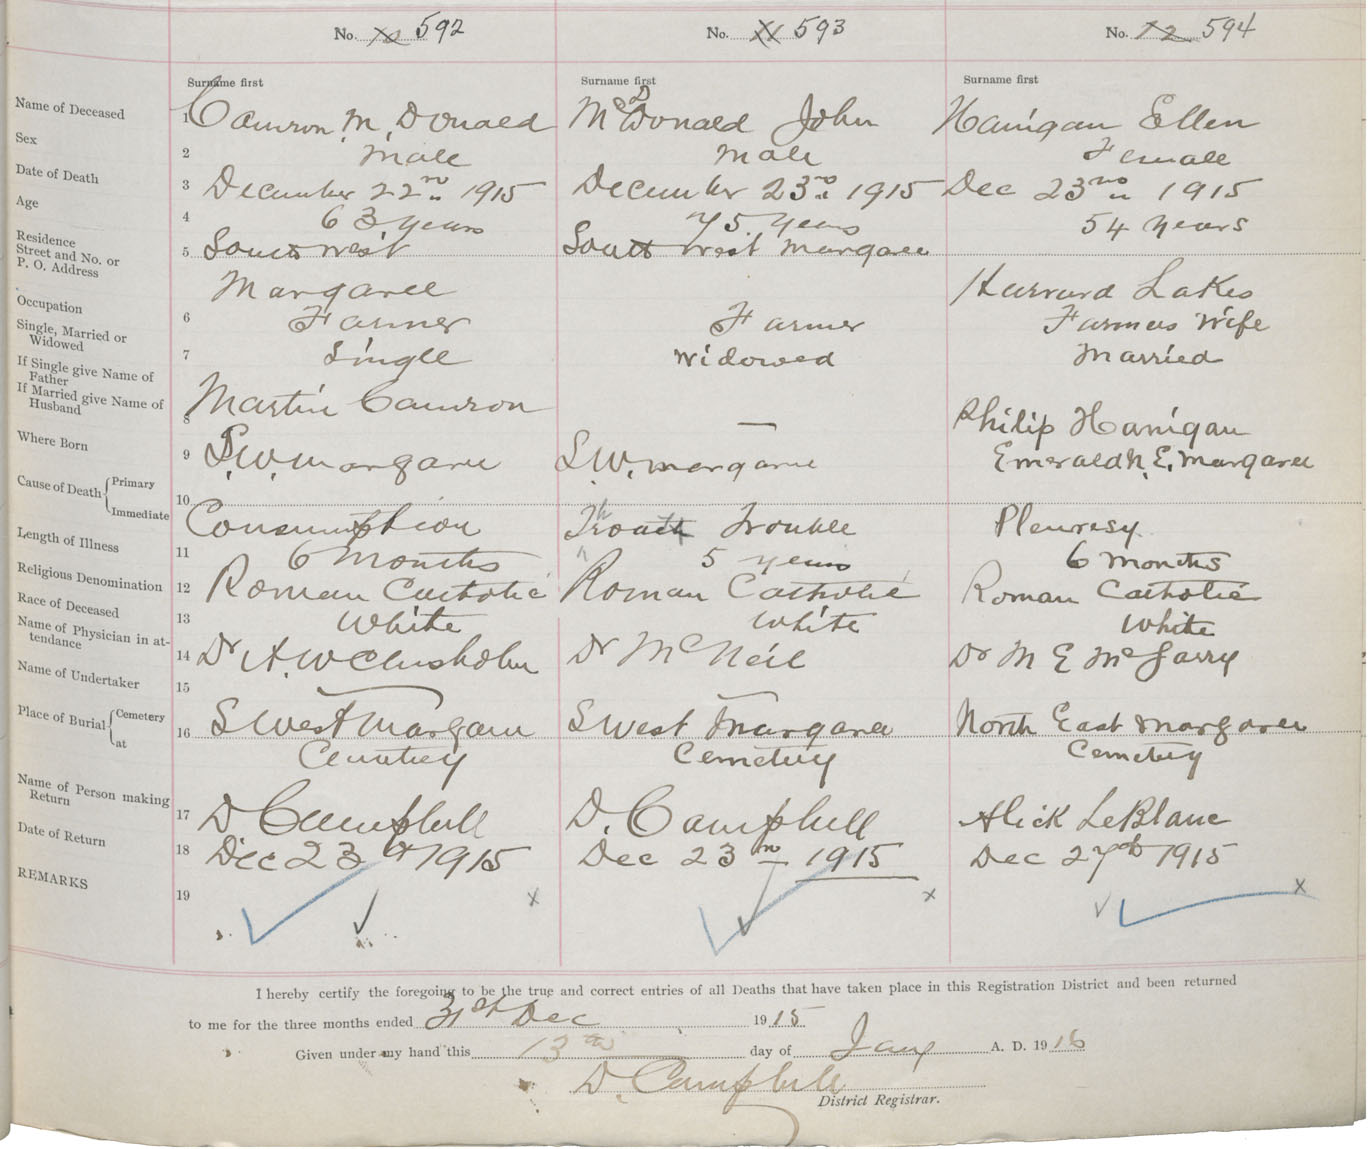 No. 10 592 No. 11 593 No. 12 594
Surname first Surname first Surname first
Name of Deceased 1 Camron M, Donald McDonald John Hanigan Ellen
Sex 2 Male Male Female
Date of Death 3 December 22nd 1915 December 23rd 1915 Dec 23rd 1915
Age 4 63 years 75 years 54 years
Residence
Street and No. or
P. O. Address
5 South west South west Margaree
Margaree Harvard Lakes
Occupation 6 Farmer Farmer Farmers Wife
Single, Married or
Widowed
7 Single Widowed Married
If Single give Name of
Father
If Married give Name of
Husband
8 Martin Camron — Philip Hanigan
Where Born 9 S.W. Margaree S.W. Margaree Emerald N.E. Margaree
Cause of Death { Primary
Immediate
10 Consumption Trouble Pleuresy
Length of Illness 11 6 Months 5 years 6 months
Religious Denomination 12 Roman Catholic Roman Catholic Roman Catholic
Race of Deceased 13 White White White
Name of Physician in at-
tendance
14 Dr A. W Chisholm Dr McNeil Dr M E McGarry
Name of Undertaker 15
Place of Burial { Cemetery
at
16 S West Margaree S West Margaree North East Margaree
Cemetery Cemetery Cemetery
Name of Person making
Return
17 D. Campbell D. Campbell Alick LeBlanc
Date of Return 18 Dec 23 1915 Dec 23rd 1915 Dec 27th 1915
REMARKS 19 x x x
I hereby certify the foregoing to be the true and correct entries of all Deaths that have taken place in this Registration District and been returned
to me for the three months ended 31st Dec 1915
Given under my hand this 13th day of Jany A. D. 1916
D. Campbell
District Registrar.